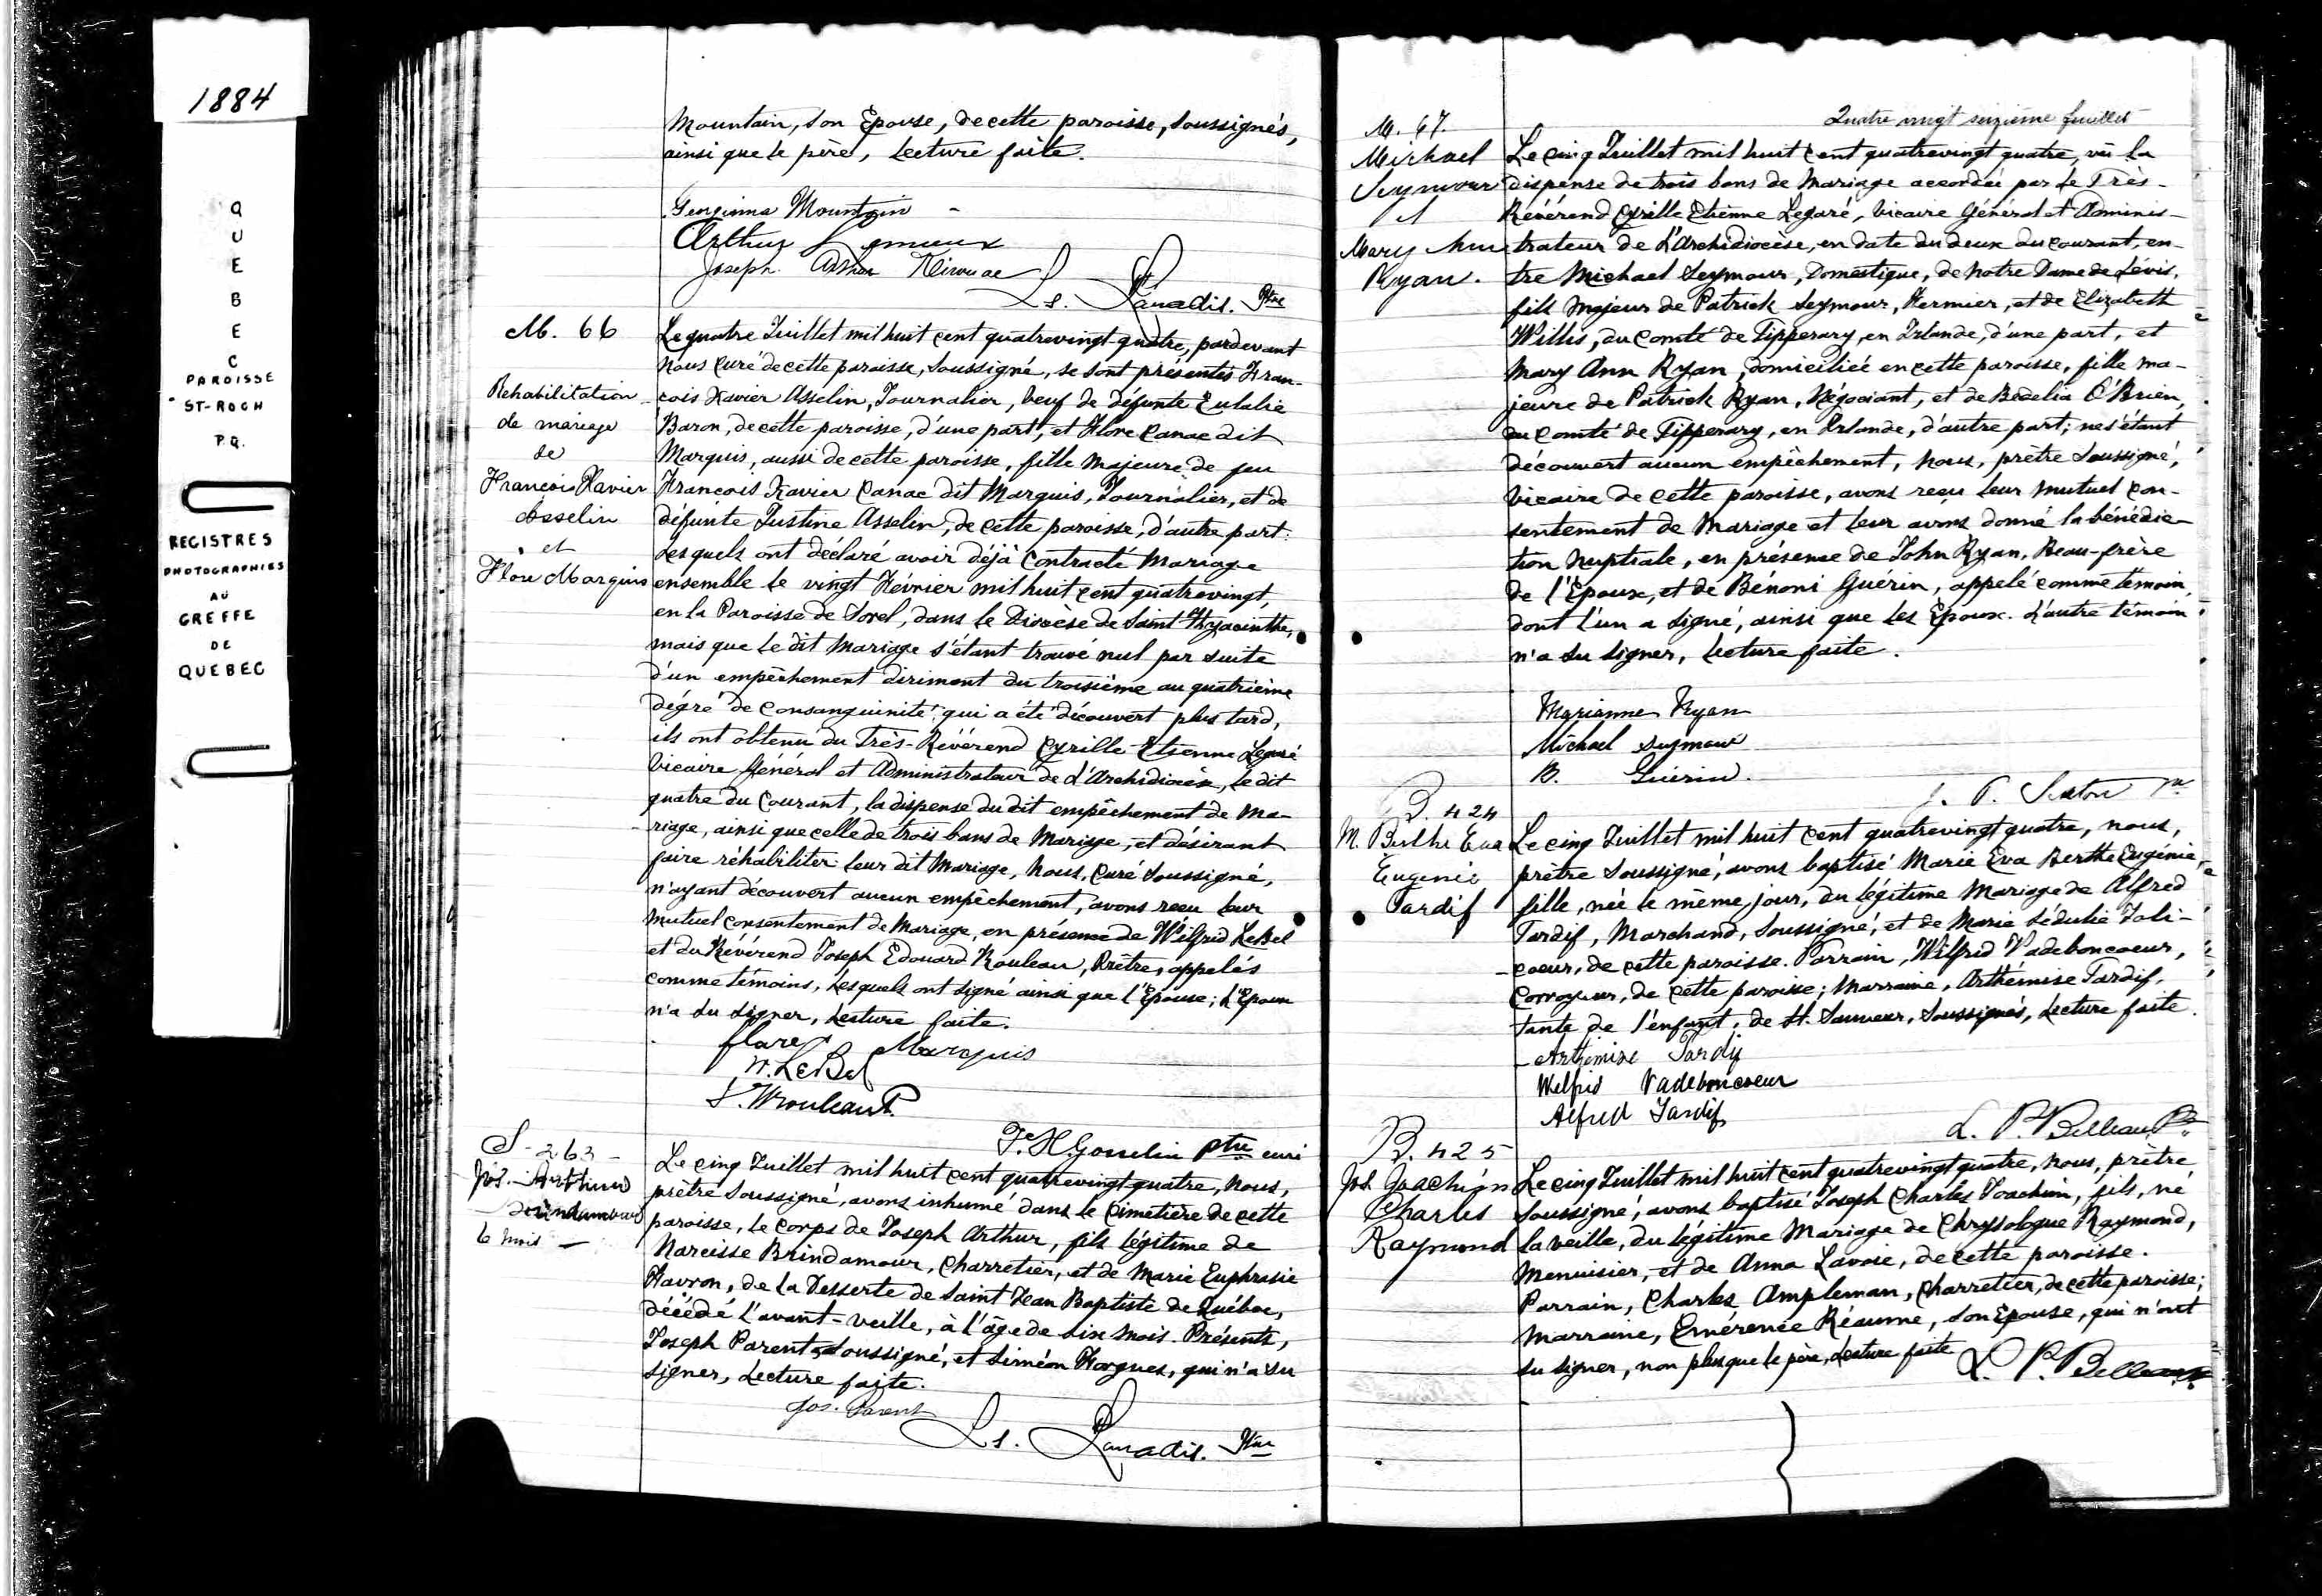 1884
QUEBEC
PAROISSE
ST-ROCH
P.Q.
REGISTRES
PHOTOGRAPHIES
AU
GREFFE
DE
QUEBEC
Mountain, son Epouse, de cette paroisse, soussignés,
ainsi que le père, Lecture faite.
Georginna Mountain
Arthur Lemieux
Joseph Arthur Kirouac
Ls. Paradis. Ptre
M. 66
Rehabilitation
de mariage
de
François Xavier
Asselin
et
Flore Marquis
Le quatre Juillet mil huit cent quatrevingt-quatre, pardevant
nous curé de cette paroisse, soussigné, se sont présentés Fran-
cois Xavier Asselin, Journalier, veuf de défunte Eulalie
Baron, de cette paroisse, d'une part, et Flore Canac dit
Marquis, aussi de cette paroisse, fille majeure de feu
Francois Xavier Canac dit Marquis, Journalier, et de
défunte Justine Asselin, de cette paroisse, d'autre part:
Lesquels ont déclaré avoir déjà contracté mariage
ensemble le vingt Février mil huit cent quatrevingt,
en la Paroisse de Sorel, dans le Diocèse de Saint Hyacinthe,
mais que le dit mariage s'étant trouvé nul par suite
d'un empêchement dirimant du troisième au quatrième
dégré de consanguinité qui a été découvert plus tard,
ils ont obtenu du Très-Révérend Cyrille Etienne Legaré
Vicaire Général et Administrateur de L'Archidiocèse, le dit
quatre du courant, la dispense du dit empêchement de Ma-
riage, ainsi que celle de trois bans de Mariage, et désirant
faire réhabiliter leur dit Mariage, Nous, Curé soussigné,
n'ayant découvert aucun empêchement, avons reçu leur
mutuel consentement de Mariage, en présence de Wilfrid LeBel
et du Révérend Joseph Edouard Rouleau, Prêtre, appelés
comme témoins, lesquels ont signé ainsi que l'Epouse; L'Epoux
n'a su signer, Lecture faite.
flore Marquis
W. LeBel
F. H. Gosselin Ptre curé
S - 263 -
Jos. Arthur
Brindamour
6 mois -
Le cinq Juillet mil huit cent quatrevingt-quatre, Nous,
prêtre soussigné, avons inhumé dans le Cimetière de cette
paroisse, le corps de Joseph Arthur, fils légitime de
Narcisse Brindamour, Charretier, et de Marie Euphrasie
Havron, de la Desserte de Saint Jean Baptiste de Québec,
décédé l'avant-veille, à l'âge de six mois. Présents,
Joseph Parent soussigné, et Siméon, qui n'a su
signer, Lecture faite.
Jos. Parent
Ls. Paradis. Ptre
Quatre vingt seizième feuillet
M. 67.
Michael
Seymour
et
Mary Ann
Ryan.
Le cinq Juillet mil huit cent quatrevingt quatre, vû la
dispense de trois bans de mariage accordée par le Très-
Révérend Cyrille Etienne Legaré, Vicaire Général et Adminis-
trateur de L'Archidiocèse, en date du deux du courant, en-
tre Michael Seymour, Domestique, de Notre Dame de Lévis,
fils majeur de Patrick Seymour, Fermier, et de Elizabeth
Willis, du comté de Tipperary, en Irlande, d'une part, et
Mary Ann Ryan, domiciliée en cette paroisse, fille ma-
jeure de Patrick Ryan, Négociant, et de Bedelia O'Brien,
du comté de Tipperary, en Irlande, d'autre part; ne s'étant
découvert aucun empêchement, nous, prêtre soussigné,
Vicaire de cette paroisse, avons reçu leur mutuel con-
sentement de mariage et leur avons donné la bénédic-
tion nuptiale, en présence de John Ryan, Beau-frère
de l'Epoux, et de Bénoni Guérin, appelé comme témoin,
dont l'un a signé, ainsi que les Epoux. L'autre témoin
n'a su signer, Lecture faite.
Marianne Ryan
Michael Seymour
B. Guérin.
J. P. Sexton Ptre
B. 424
M. Berthe Eva
Eugenie
Tardif
Le cinq Juillet mil huit cent quatrevingt quatre, nous,
prêtre soussigné, avons baptisé Marie Eva Berthe Eugénie,
fille, née le même jour, du légitime Mariage de Alfred
Tardif, Marchand, soussigné, et de Marie Sédulie Joli-
coeur, de cette paroisse. Parrain, Wilfrid Vadeboncoeur,
Corroyeur, de cette paroisse; Marraine, Arthémise Tardif,
tante de l'enfant, de St. Sauveur, soussignés, Lecture faite.
Arthémise Tardif
Wilfrid Vadeboncoeur
Alfred Tardif
L. P. Belleau Ptre
B. 425
Jos. Joachim
Charles
Raymond
Le cinq Juillet mil huit cent quatrevingt quatre, nous, prêtre
soussigné, avons baptisé Joseph Charles Joachim, fils, né
la veille, du légitime Mariage de Chrysologue Raymond,
Menuisier, et de Anna Lavoie, de cette paroisse.
Parrain, Charles Ampleman, Charretier, de cette paroisse;
Marraine, Emérencie Réaume, son Epouse, qui n'ont
su signer, non plus que le père, Lecture faite
L. P. Belleau